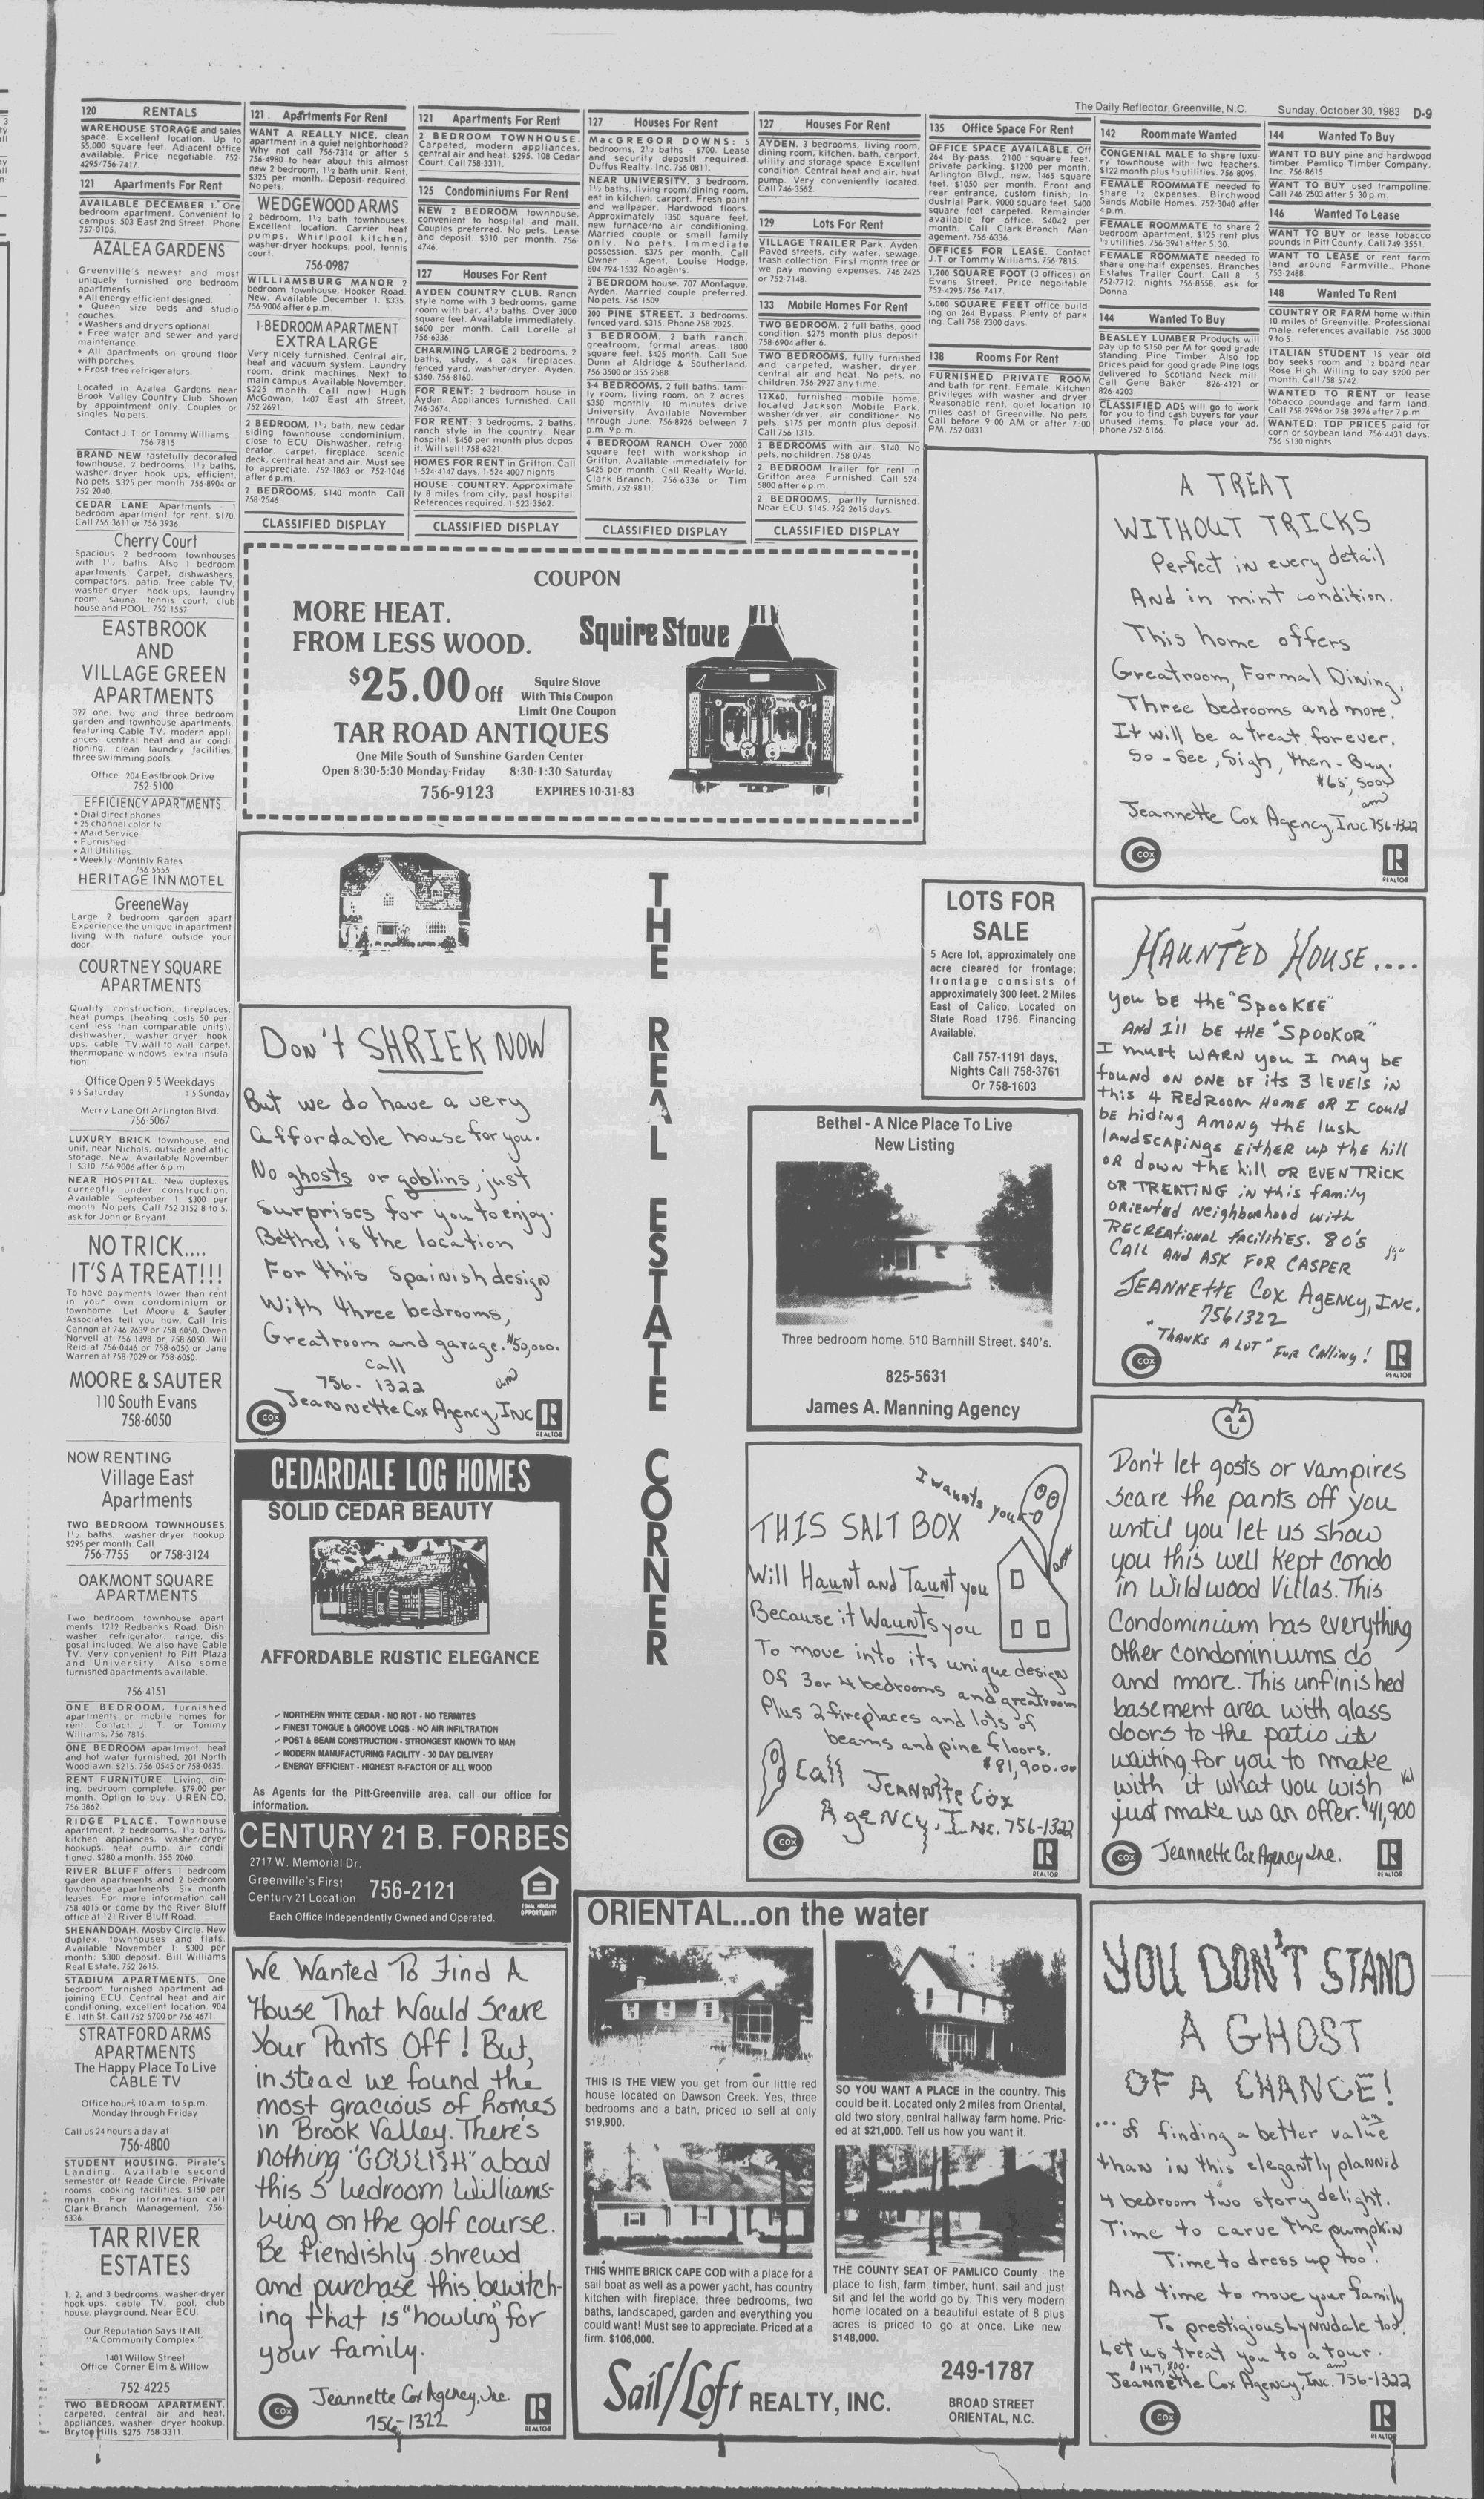 The Daily Reflector, Greenville, N.C. Sunday, October 30, 1983 D-9
120 RENTALS
WAREHOUSE STORAGE and sales
space. Excellent location. Up to
55,000 square feet. Adjacent office
available. Price negotiable. 752
4295/756-7417.
121 Apartments For Rent
AVAILABLE DECEMBER 1. One
bedroom apartment. Convenient to
campus. 503 East 2nd Street. Phone
757-0105.
AZALEA GARDENS
Greenville's newest and most
uniquely furnished one bedroom
apartments.
• All energy efficient designed.
• Queen size beds and studio
couches.
• Washers and dryers optional
• Free water and sewer and yard
maintenance.
• All apartments on ground floor
with porches.
• Frost free refrigerators.
Located in Azalea Gardens near
Brook Valley Country Club. Shown
by appointment only. Couples or
singles. No pets.
Contact J.T. or Tommy Williams
756 7815
BRAND NEW tastefully decorated
townhouse, 2 bedrooms, 1½ baths,
washer/dryer hook ups, efficient.
No pets. $325 per month. 756-8904 or
752 2040.
CEDAR LANE Apartments - 1
bedroom apartment for rent. $170.
Call 756 3611 or 756 3936.
Cherry Court
Spacious 2 bedroom townhouses
with 1½ baths. Also 1 bedroom
apartments. Carpet, dishwashers,
compactors, patio, free cable TV,
washer dryer hook ups, laundry
room, sauna, tennis court, club
house and POOL. 752 1557
EASTBROOK
AND
VILLAGE GREEN
APARTMENTS
327 one, two and three bedroom
garden and townhouse apartments,
featuring Cable TV, modern appli
ances, central heat and air condi
tioning, clean laundry facilities,
three swimming pools.
Office 204 Eastbrook Drive
752-5100
EFFICIENCY APARTMENTS
• Dial direct phones
• 25 channel color tv
• Maid Service
• Furnished
• All Utilities
• Weekly/Monthly Rates
756 5555
HERITAGE INN MOTEL
GreeneWay
Large 2 bedroom garden apart
Experience the unique in apartment
living with nature outside your
door.
COURTNEY SQUARE
APARTMENTS
Quality construction, fireplaces,
heat pumps (heating costs 50 per
cent less than comparable units),
dishwasher, washer dryer hook
ups, cable TV, wall to wall carpet,
thermopane windows, extra insula
tion.
Office Open 9-5 Weekdays
9 5 Saturday 1 5 Sunday
Merry Lane Off Arlington Blvd.
756-5067
LUXURY BRICK townhouse, end
unit, near Nichols, outside and attic
storage. New. Available November
1. $310. 756 9006 after 6 p.m.
NEAR HOSPITAL. New duplexes
currently under construction.
Available September 1. $300 per
month. No pets. Call 752 3152 8 to 5,
ask for John or Bryant.
NO TRICK....
IT'S A TREAT!!!
To have payments lower than rent
in your own condominium or
townhome. Let Moore & Sauter
Associates tell you how. Call Iris
Cannon at 746 2639 or 758 6050, Owen
Norvell at 756 1498 or 758 6050, Wil
Reid at 756 0446 or 758 6050 or Jane
Warren at 758 7029 or 758 6050.
MOORE & SAUTER
110 South Evans
758-6050
NOW RENTING
Village East
Apartments
TWO BEDROOM TOWNHOUSES,
1½ baths, washer dryer hookup.
$295 per month. Call
756-7755 or 758-3124
OAKMONT SQUARE
APARTMENTS
Two bedroom townhouse apart
ments. 1212 Redbanks Road. Dish
washer, refrigerator, range, dis
posal included. We also have Cable
TV. Very convenient to Pitt Plaza
and University. Also some
furnished apartments available.
756-4151
ONE BEDROOM, furnished
apartments or mobile homes for
rent. Contact J. T. or Tommy
Williams, 756 7815.
ONE BEDROOM apartment, heat
and hot water furnished, 201 North
Woodlawn. $215. 756 0545 or 758 0635.
RENT FURNITURE: Living, din
ing, bedroom complete. $79.00 per
month. Option to buy. U REN CO,
756 3862.
RIDGE PLACE. Townhouse
apartment, 2 bedrooms, 1½ baths,
kitchen appliances, washer/dryer
hookups, heat pump, air condi
tioned. $280 a month. 355 2060.
RIVER BLUFF offers 1 bedroom
garden apartments and 2 bedroom
townhouse apartments. Six month
leases. For more information call
758 4015 or come by the River Bluff
office at 121 River Bluff Road.
SHENANDOAH. Mosby Circle. New
duplex, townhouses and flats.
Available November 1. $300 per
month; $300 deposit. Bill Williams
Real Estate, 752 2615.
STADIUM APARTMENTS. One
bedroom furnished apartment ad
joining ECU. Central heat and air
conditioning, excellent location. 904
E. 14th St. Call 752 5700 or 756 4671.
STRATFORD ARMS
APARTMENTS
The Happy Place To Live
CABLE TV
Office hours 10 a.m. to 5 p.m.
Monday through Friday
Call us 24 hours a day at
756-4800
STUDENT HOUSING. Pirate's
Landing. Available second
semester off Reade Circle. Private
rooms, cooking facilities. $150 per
month. For information call
Clark-Branch Management, 756
6336.
TAR RIVER
ESTATES
1, 2, and 3 bedrooms, washer-dryer
hook ups, cable TV, pool, club
house, playground. Near ECU.
Our Reputation Says It All
"A Community Complex."
1401 Willow Street
Office Corner Elm & Willow
752-4225
TWO BEDROOM APARTMENT,
carpeted, central air and heat,
appliances, washer dryer hookup.
Bryton Hills. $275. 758 3311.
121 Apartments For Rent
WANT A REALLY NICE, clean
apartment in a quiet neighborhood?
Why not call 756-7314 or after 5
756-4980 to hear about this almost
new 2 bedroom, 1½ bath unit. Rent,
$325 per month. Deposit required.
No pets.
WEDGEWOOD ARMS
2 bedroom, 1½ bath townhouses.
Excellent location. Carrier heat
pumps, Whirlpool kitchen,
washer-dryer hookups, pool, tennis
court.
756-0987
WILLIAMSBURG MANOR 2
bedroom townhouse, Hooker Road.
New. Available December 1. $335.
756-9006 after 6 p.m.
1-BEDROOM APARTMENT
EXTRA LARGE
Very nicely furnished. Central air,
heat and vacuum system. Laundry
room, drink machines. Next to
main campus. Available November.
$225 month. Call now! Hugh
McGowan, 1407 East 4th Street,
752 2691.
2 BEDROOM, 1½ bath, new cedar
siding townhouse condominium,
close to ECU. Dishwasher, refrig
erator, carpet, fireplace, scenic
deck, central heat and air. Must see
to appreciate. 752-1863 or 752-1046
after 6 p.m.
2 BEDROOMS, $140 month. Call
758 2546.
CLASSIFIED DISPLAY
121 Apartments For Rent
2 BEDROOM TOWNHOUSE.
Carpeted, modern appliances,
central air and heat. $295. 108 Cedar
Court. Call 758-3311.
125 Condominiums For Rent
NEW 2 BEDROOM townhouse,
convenient to hospital and mall.
Couples preferred. No pets. Lease
and deposit. $310 per month. 756
4746.
127 Houses For Rent
AYDEN COUNTRY CLUB. Ranch
style home with 3 bedrooms, game
room with bar, 4½ baths. Over 3000
square feet. Available immediately.
$600 per month. Call Lorelle at
756-6336.
CHARMING LARGE 2 bedrooms, 2
baths, study, 4 oak fireplaces,
fenced yard, washer/dryer. Ayden,
$360. 756 8160.
FOR RENT: 2 bedroom house in
Ayden. Appliances furnished. Call
746-3674.
FOR RENT: 3 bedrooms, 2 baths,
ranch style in the country. Near
hospital. $450 per month plus depos
it. Will sell! 758 6321.
HOMES FOR RENT in Grifton. Call
1-524-4147 days, 1 524 4007 nights.
HOUSE - COUNTRY. Approximate
ly 8 miles from city, past hospital.
References required. 1 523 3562.
CLASSIFIED DISPLAY
127 Houses For Rent
MacGREGOR DOWNS: 5
bedrooms, 2½ baths - $700. Lease
and security deposit required.
Duffus Realty, Inc. 756-0811.
NEAR UNIVERSITY. 3 bedroom,
1½ baths, living room/dining room,
eat in kitchen, carport. Fresh paint
and wallpaper. Hardwood floors.
Approximately 1350 square feet,
new furnace/no air conditioning.
Married couple or small family
only. No pets. Immediate
possession. $375 per month. Call
Owner - Agent, Louise Hodge,
804-794-1532. No agents.
2 BEDROOM house. 707 Montague,
Ayden. Married couple preferred.
No pets. 756-1509.
200 PINE STREET. 3 bedrooms,
fenced yard. $315. Phone 758 2025.
3 BEDROOM, 2 bath ranch,
greatroom, formal areas, 1800
square feet. $425 month. Call Sue
Dunn at Aldridge & Southerland,
756 3500 or 355 2588.
3-4 BEDROOMS, 2 full baths, fami
ly room, living room, on 2 acres.
$350 monthly. 10 minutes drive
University. Available November
through June. 756-8926 between 7
p.m. 9 p.m.
4 BEDROOM RANCH. Over 2000
square feet with workshop in
Grifton. Available immediately for
$425 per month. Call Realty World,
Clark Branch, 756 6336 or Tim
Smith, 752 9811.
CLASSIFIED DISPLAY
127 Houses For Rent
AYDEN, 3 bedrooms, living room,
dining room, kitchen, bath, carport,
utility and storage space. Excellent
condition. Central heat and air, heat
pump. Very conveniently located.
Call 746-3562.
129 Lots For Rent
VILLAGE TRAILER Park, Ayden.
Paved streets, city water, sewage,
trash collection. First month free or
we pay moving expenses. 746 2425
or 752-7148.
133 Mobile Homes For Rent
TWO BEDROOM, 2 full baths, good
condition. $275 month plus deposit.
758 6904 after 6.
TWO BEDROOMS, fully furnished
and carpeted, washer, dryer,
central air and heat. No pets, no
children. 756 2927 any time.
12X60, furnished mobile home,
located Jackson Mobile Park,
washer/dryer, air conditioner. No
pets. $175 per month plus deposit.
Call 756-1315.
2 BEDROOMS with air. $140. No
pets, no children. 758 0745.
2 BEDROOM trailer for rent in
Grifton area. Furnished. Call 524
5800 after 6 p.m.
2 BEDROOMS, partly furnished.
Near ECU. $145. 752 2615 days.
CLASSIFIED DISPLAY
135 Office Space For Rent
OFFICE SPACE AVAILABLE. Off
264 By-pass. 2100 square feet,
private parking. $1200 per month.
Arlington Blvd., new, 1465 square
feet. $1050 per month. Front and
rear entrance, custom finish. In
dustrial Park, 9000 square feet, 5400
square feet carpeted. Remainder
available for office. $4042 per
month. Call Clark Branch Man
agement, 756-6336.
OFFICES FOR LEASE. Contact
J.T. or Tommy Williams, 756 7815.
1,200 SQUARE FOOT (3 offices) on
Evans Street. Price negotiable.
752-4295/756-7417.
5,000 SQUARE FEET office build
ing on 264 Bypass. Plenty of park
ing. Call 758 2300 days.
138 Rooms For Rent
FURNISHED PRIVATE ROOM
and bath for rent. Female Kitchen
privileges with washer and dryer.
Reasonable rent, quiet location 10
miles east of Greenville. No pets.
Call before 9:00 AM or after 7:00
PM. 752 0831.
142 Roommate Wanted
CONGENIAL MALE to share luxu
ry townhouse with two teachers.
$122 month plus ⅓ utilities. 756 8095.
FEMALE ROOMMATE needed to
share ½ expenses. Birchwood
Sands Mobile Homes. 752-3040 after
4 p.m.
FEMALE ROOMMATE to share 2
bedroom apartment. $125 rent plus
½ utilities. 756 3941 after 5:30.
FEMALE ROOMMATE needed to
share one-half expenses. Branches
Estates Trailer Court. Call 8 - 5
752-7712, nights 756 8558, ask for
Donna.
144 Wanted To Buy
BEASLEY LUMBER Products will
pay up to $150 per M for good grade
standing Pine Timber. Also top
prices paid for good grade Pine logs
delivered to Scotland Neck mill.
Call Gene Baker 826-4121 or
826-4203.
CLASSIFIED ADS will go to work
for you to find cash buyers for your
unused items. To place your ad,
phone 752-6166.
144 Wanted To Buy
WANT TO BUY pine and hardwood
timber. Pamlico Timber Company,
Inc. 756-8615.
WANT TO BUY used trampoline.
Call 746 2503 after 5:30 p.m.
146 Wanted To Lease
WANT TO BUY or lease tobacco
pounds in Pitt County. Call 749 3551.
WANT TO LEASE or rent farm
land around Farmville. Phone
753-2488.
148 Wanted To Rent
COUNTRY OR FARM home within
10 miles of Greenville. Professional
male, references available. 756 3000
9 to 5.
ITALIAN STUDENT 15 year old
boy seeks room and ½ board near
Rose High. Willing to pay $200 per
month. Call 758 5742.
WANTED TO RENT or lease
tobacco poundage and farm land.
Call 758 2996 or 758 3976 after 7 p.m.
WANTED: TOP PRICES paid for
corn or soybean land. 756 4431 days,
756-5130 nights.
COUPON
MORE HEAT.
FROM LESS WOOD.
Squire Stove
$25.00 Off
Squire Stove
With This Coupon
Limit One Coupon
TAR ROAD ANTIQUES
One Mile South of Sunshine Garden Center
Open 8:30-5:30 Monday-Friday 8:30-1:30 Saturday
756-9123 EXPIRES 10-31-83
THE REAL ESTATE CORNER
A TREAT
WITHOUT TRICKS
Perfect in every detail
And in mint condition.
This home offers
Greatroom, Formal Dining,
Three bedrooms and more.
It will be a treat forever.
So - See, Sigh, then - Buy.
$65,500
Jeannette Cox Agency, Inc. 756-1322
COX
REALTOR
LOTS FOR
SALE
5 Acre lot, approximately one
acre cleared for frontage;
frontage consists of
approximately 300 feet. 2 Miles
East of Calico. Located on
State Road 1796. Financing
Available.
Call 757-1191 days,
Nights Call 758-3761
Or 758-1603
HAUNTED HOUSE....
you be the "SpooKEE"
AND I'll be tHE "SpooKOR"
I must WARN you I MAY BE
found ON ONE OF its 3 lEVElS IN
this 4 BEDROOM HOME OR I could
BE hiding AMONG the lush
lANDscApiNgs EiTHER up tHE hill
OR dowN tHE hill OR EVEN TRICK
OR TREATING iN this fAmily
ORiENted NEighborhood with
RECREATIONAL fACilitiES. 80's
CALL AND ASK FOR CASPER
JEANNETTE COX AGENCY, INC.
7561322
"THANKS A LOT" FOR CAlliNg!
COX
REALTOR
DON'T SHRIEK NOW
But we do have a very
affordable house for you.
No ghosts or goblins, just
Surprises for you to enjoy.
Bethel is the location
For this Spainish design
With three bedrooms,
Greatroom and garage. $50,000.
Call
756-1322
Jeannette Cox Agency, Inc
COX
REALTOR
Bethel - A Nice Place To Live
New Listing
Three bedroom home. 510 Barnhill Street. $40's.
825-5631
James A. Manning Agency
CEDARDALE LOG HOMES
SOLID CEDAR BEAUTY
AFFORDABLE RUSTIC ELEGANCE
✓ NORTHERN WHITE CEDAR - NO ROT - NO TERMITES
✓ FINEST TONGUE & GROOVE LOGS - NO AIR INFILTRATION
✓ POST & BEAM CONSTRUCTION - STRONGEST KNOWN TO MAN
✓ MODERN MANUFACTURING FACILITY - 30 DAY DELIVERY
✓ ENERGY EFFICIENT - HIGHEST R-FACTOR OF ALL WOOD
As Agents for the Pitt-Greenville area, call our office for
information.
CENTURY 21 B. FORBES
2717 W. Memorial Dr.
Greenville's First
Century 21 Location 756-2121
EQUAL HOUSING
OPPORTUNITY
Each Office Independently Owned and Operated.
I waunts you
THIS SALT BOX
Will Haunt and Taunt you
Because it Waunts you
To move into its unique design
Of 3 or 4 bedrooms and greatroom
Plus 2 fireplaces and lots of
beams and pine floors.
$81,900.00
Call Jeannitte Cox
Agency, Inc. 756-1322
COX
REALTOR
Don't let gosts or vampires
scare the pants off you
until you let us show
you this well kept condo
in Wildwood Villas. This
Condominium has everything
other condominiums do
and more. This unfinished
basement area with glass
doors to the patio is
waiting for you to make
with it what you wish
just make us an offer. $41,900
Jeannette Cox Agency Inc.
COX
REALTOR
We Wanted To Find A
House That Would Scare
Your Pants Off! But,
instead we found the
most gracious of homes
in Brook Valley. There's
nothing "GOULISH" about
this 5 bedroom Williams-
burg on the golf course.
Be fiendishly shrewd
and purchase this bewitch-
ing that is "howling" for
your family.
Jeannette Cox Agency, Inc.
756-1322
COX
REALTOR
ORIENTAL...on the water
THIS IS THE VIEW you get from our little red
house located on Dawson Creek. Yes, three
bedrooms and a bath, priced to sell at only
$19,900.
SO YOU WANT A PLACE in the country. This
could be it. Located only 2 miles from Oriental,
old two story, central hallway farm home. Pric-
ed at $21,000. Tell us how you want it.
THIS WHITE BRICK CAPE COD with a place for a
sail boat as well as a power yacht, has country
kitchen with fireplace, three bedrooms, two
baths, landscaped, garden and everything you
could want! Must see to appreciate. Priced at a
firm. $106,000.
THE COUNTY SEAT OF PAMLICO County - the
place to fish, farm, timber, hunt, sail and just
sit and let the world go by. This very modern
home located on a beautiful estate of 8 plus
acres is priced to go at once. Like new.
$148,000.
Sail/Loft REALTY, INC.
249-1787
BROAD STREET
ORIENTAL, N.C.
YOU DON'T STAND
A GHOST
OF A CHANCE!
... of finding a better value
than in this elegantly plannid
4 bedroom two story delight.
Time to carve the pumpkin
Time to dress up too!
And time to move your family
To prestigious Lynndale too!
Let us treat you to a tour.
$147,800.
Jeannette Cox Agency, Inc. 756-1322
COX
REALTOR